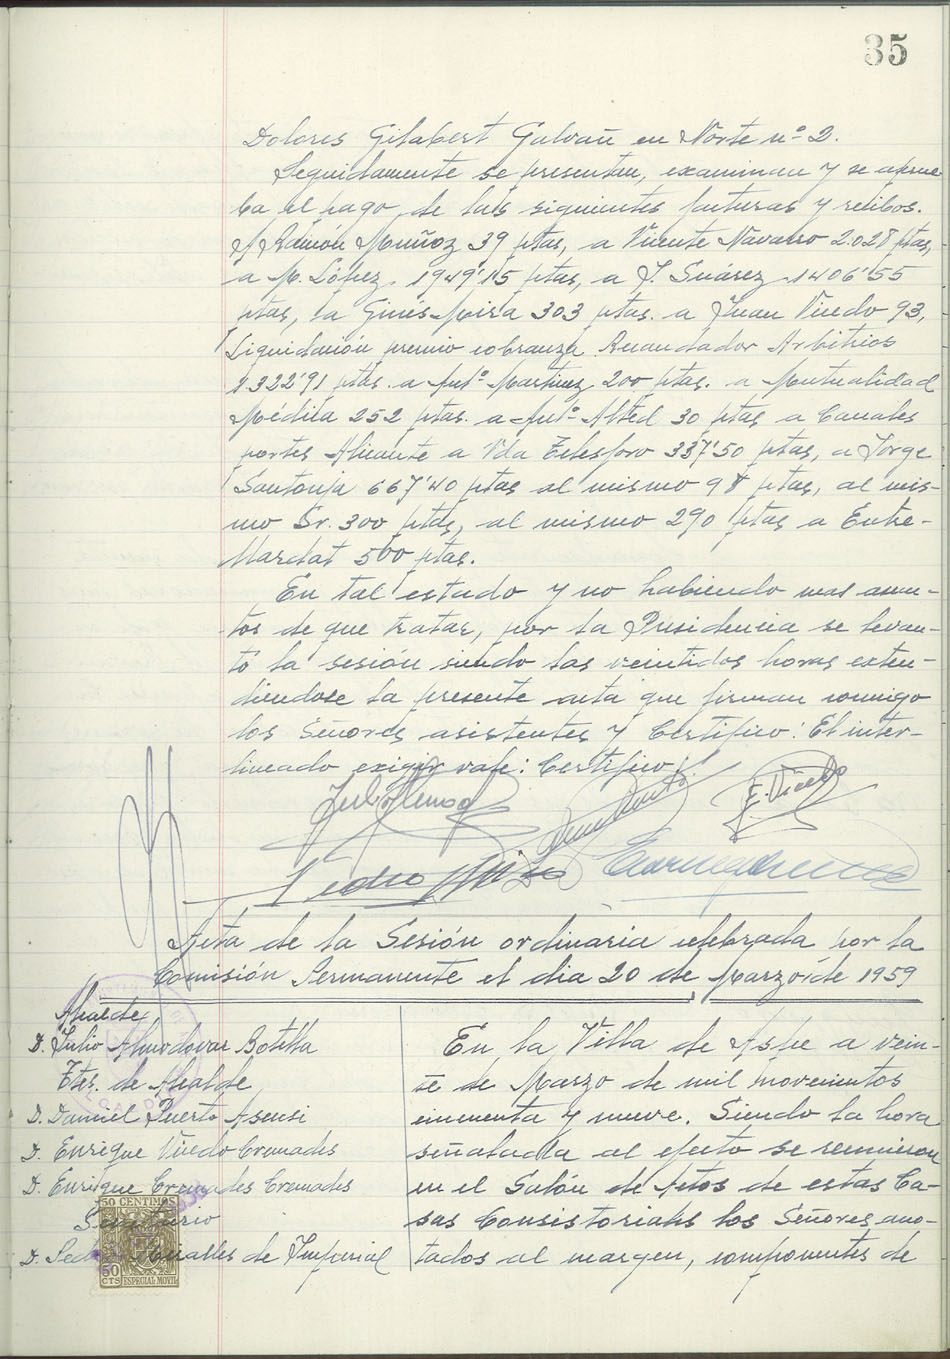 35
Dolores Gilabert Galvañ en Norte nº 2.
Seguidamente se presentan, examinan y se aprue-
ba el pago de las siguientes facturas y recibos.
A Ramón Muñoz 39 ptas, a Vicente Navarro 2.028 ptas,
a M. López, 1949'15 ptas, a J. Suárez 1406'55
ptas, a Ginés Mira 303 ptas. a Juan Vicedo 93,
Liquidación premio cobranza Recaudador Arbitrios
1.322'91 ptas. a Antº Martinez 200 ptas. a Mutualidad
Médica 252 ptas. a Antº Alted 30 ptas a Canales
portes Alicante a Vda Telesforo 337'50 ptas, a Jorge
Santonja 667'40 ptas al mismo 98 ptas, al mis-
mo Sr. 300 ptas, al mismo 290 ptas a
500 ptas.
En tal estado y no habiendo mas asun-
tos de que tratar, por la Presidencia se levan-
tó la sesión siendo las veintidos horas exten-
diendose la presente acta que firman conmigo
los Señores asistentes y Certifico: El inter-
lineado exigir vale: Certifico:
E. Vicedo
Pedro
Acta de la Sesión ordinaria celebrada por la
Comisión Permanente el dia 20 de Marzo de 1959
Alcalde
D. Julio Almodovar Botella
Ttes. de Alcalde
D. Daniel Puerto Asensi
D. Enrique Vicedo Cremades
D. Enrique Cremades Cremades
Secretario
D. Miralles de Imperial
En la Villa de Aspe a vein-
te de Marzo de mil novecientos
cincuenta y nueve. Siendo la hora
señalada al efecto se reunieron
en el Salón de Actos de estas Ca-
sas Consistoriales los Señores ano-
tados al margen, componentes de
50 CENTIMOS
50
CTS ESPECIAL MOVIL